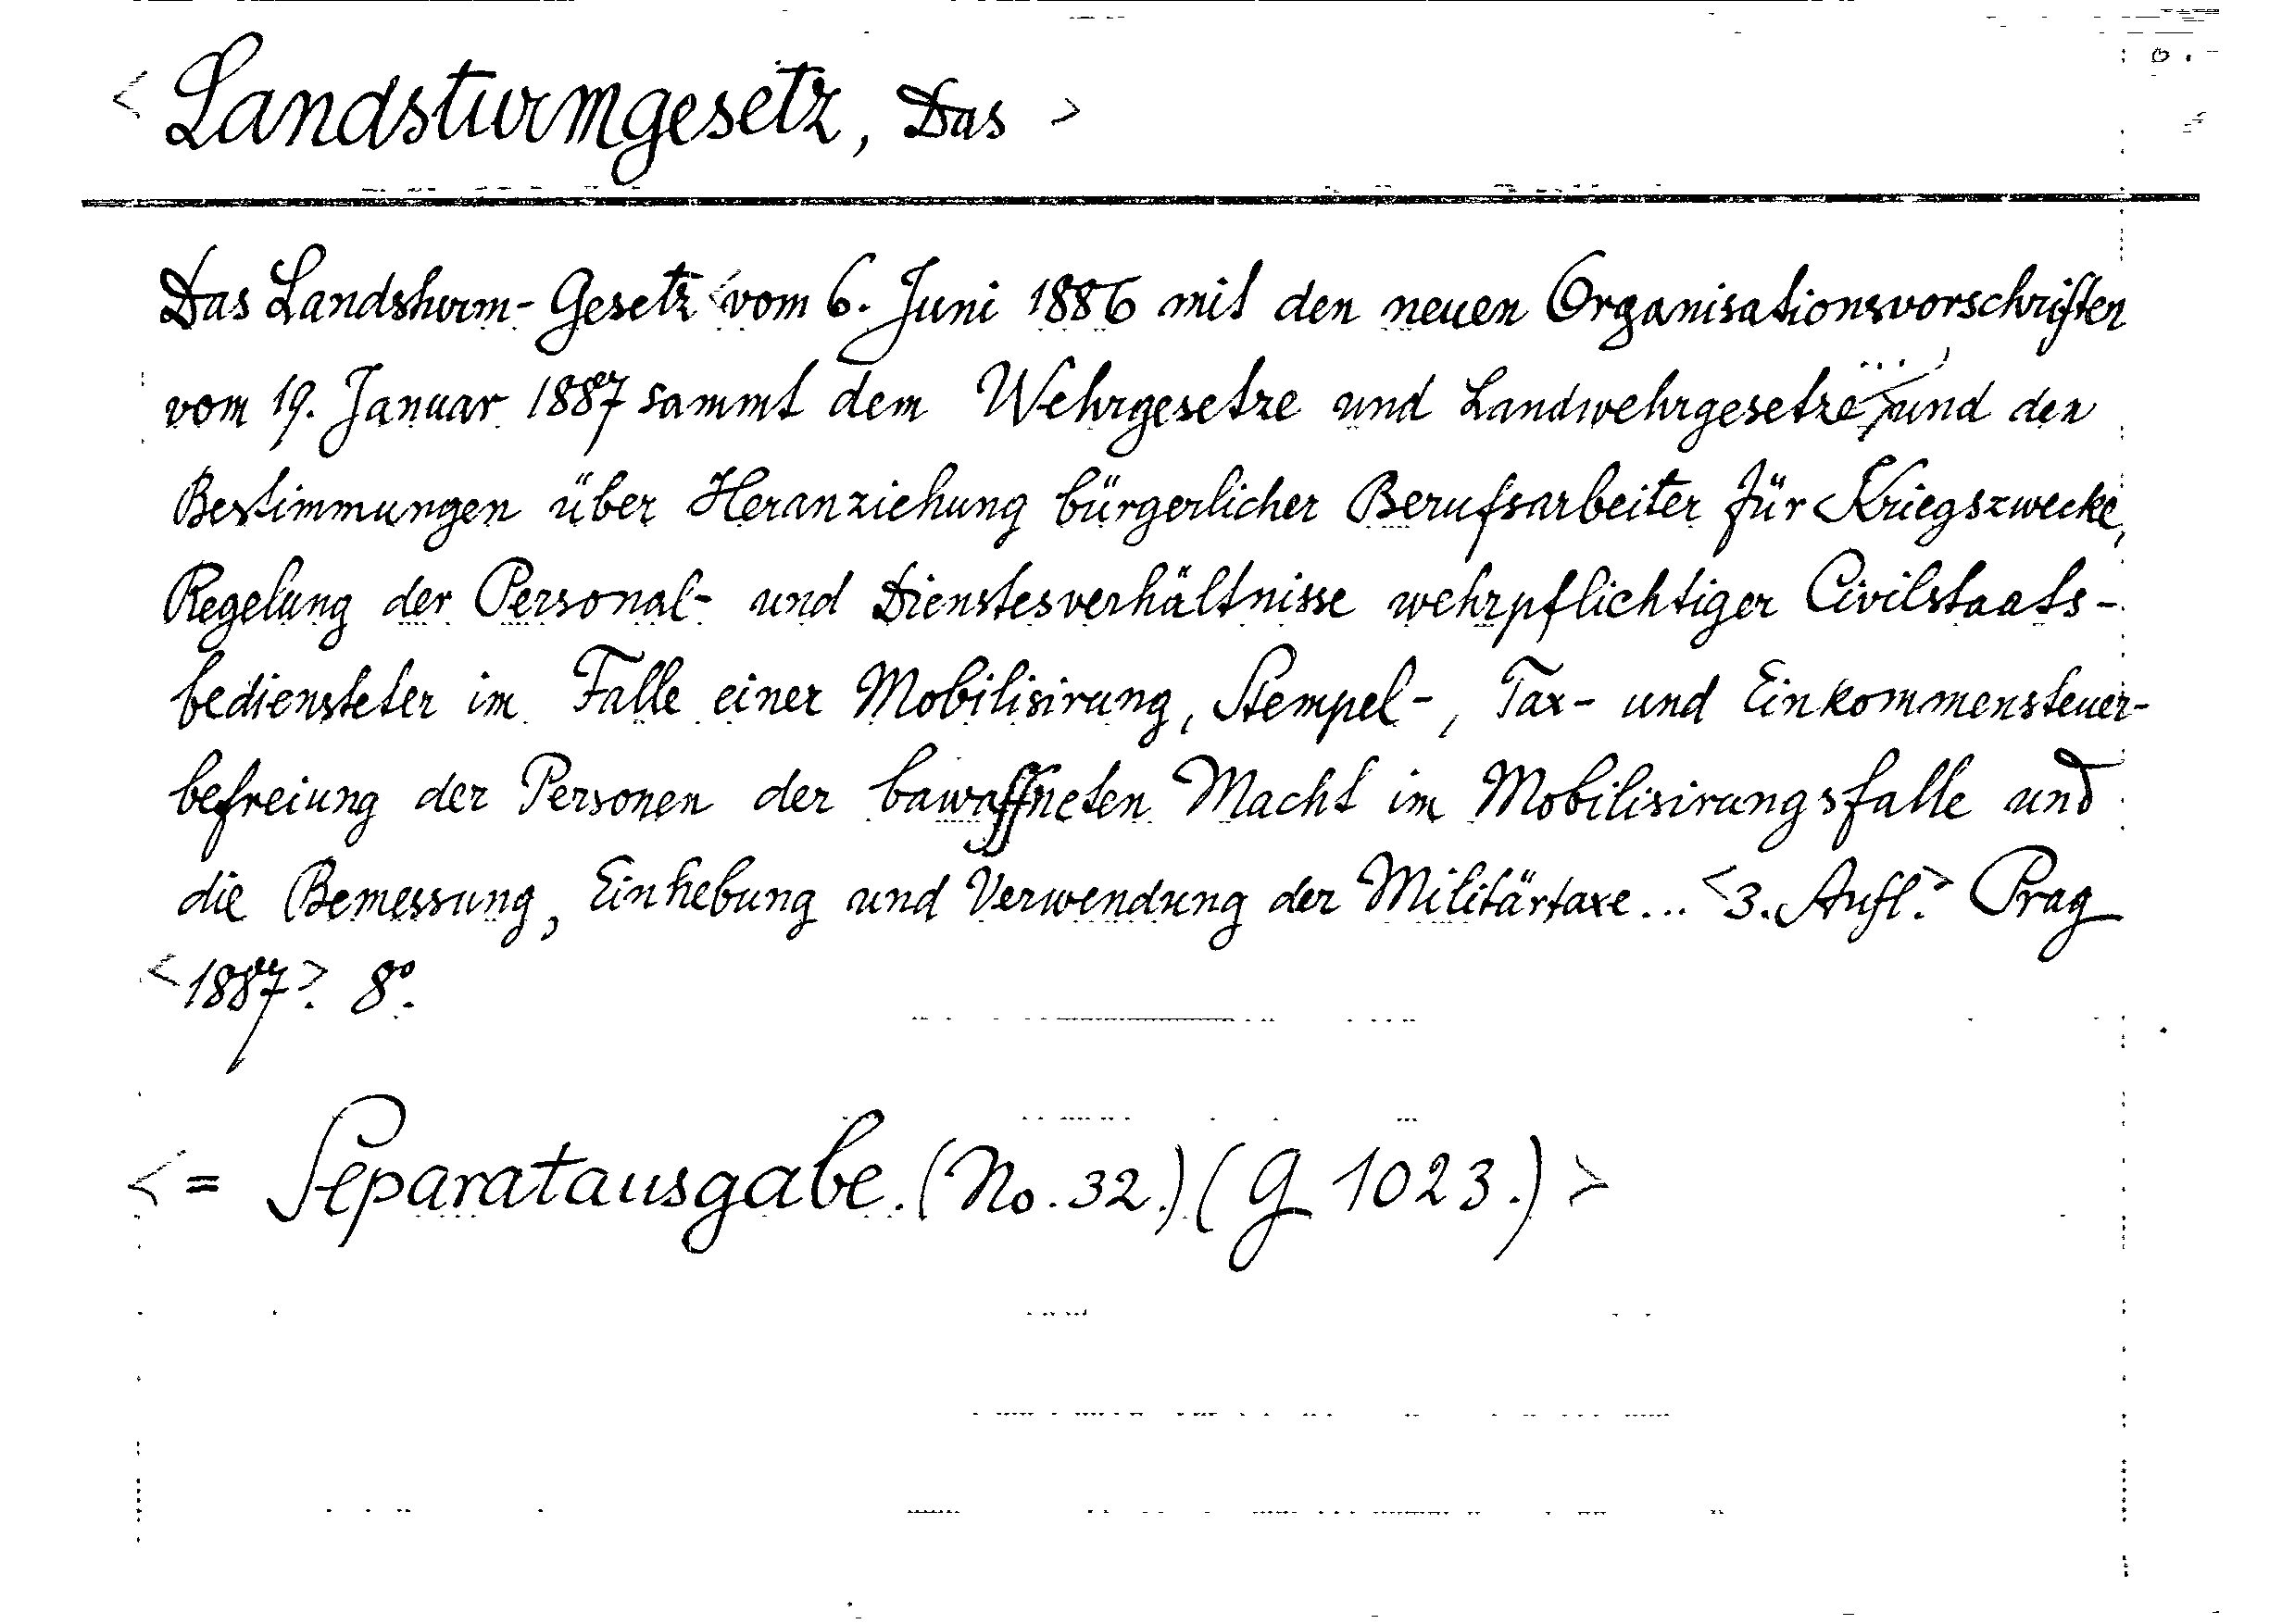 < Landsturmgesetz, Das >
Das Landsturm-Gesetz <vom 6. Juni 1886 mit den neuen Organisationsvorschriften
vom 19. Januar 1887 sammt dem Wehrgesetze und Landwehrgesetze> und den
Bestimmungen über Heranziehung bürgerlicher Berufsarbeiter für Kriegszwecke,
Regelung der Personal- und Dienstesverhältnisse wehrpflichtiger Civilstaats-
bediensteter im Falle einer Mobilisirung, Stempel-, Tax- und Einkommensteuer-
befreiung der Personen der bawaffneten Macht im Mobilisirungsfalle und
die Bemessung, Einhebung und Verwendung der Militärtaxe... <3. Aufl.> Prag
<1887>. 8°.
< = Separatausgabe. (No. 32.) (G 1023.) >